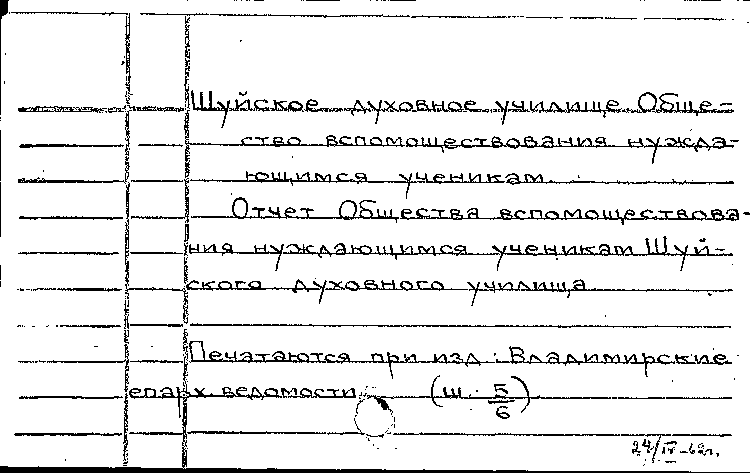 Шуйское духовное училище. Обще-
ство вспомоществования нужда-
ющимся ученикам.
Отчет Общества вспомоществова-
ния нуждающимся ученикам Шуй-
ского духовного училища
Печатаются при изд.: Владимирские
епарх. ведомости. (ш. 5/6)
24/IV-62г.